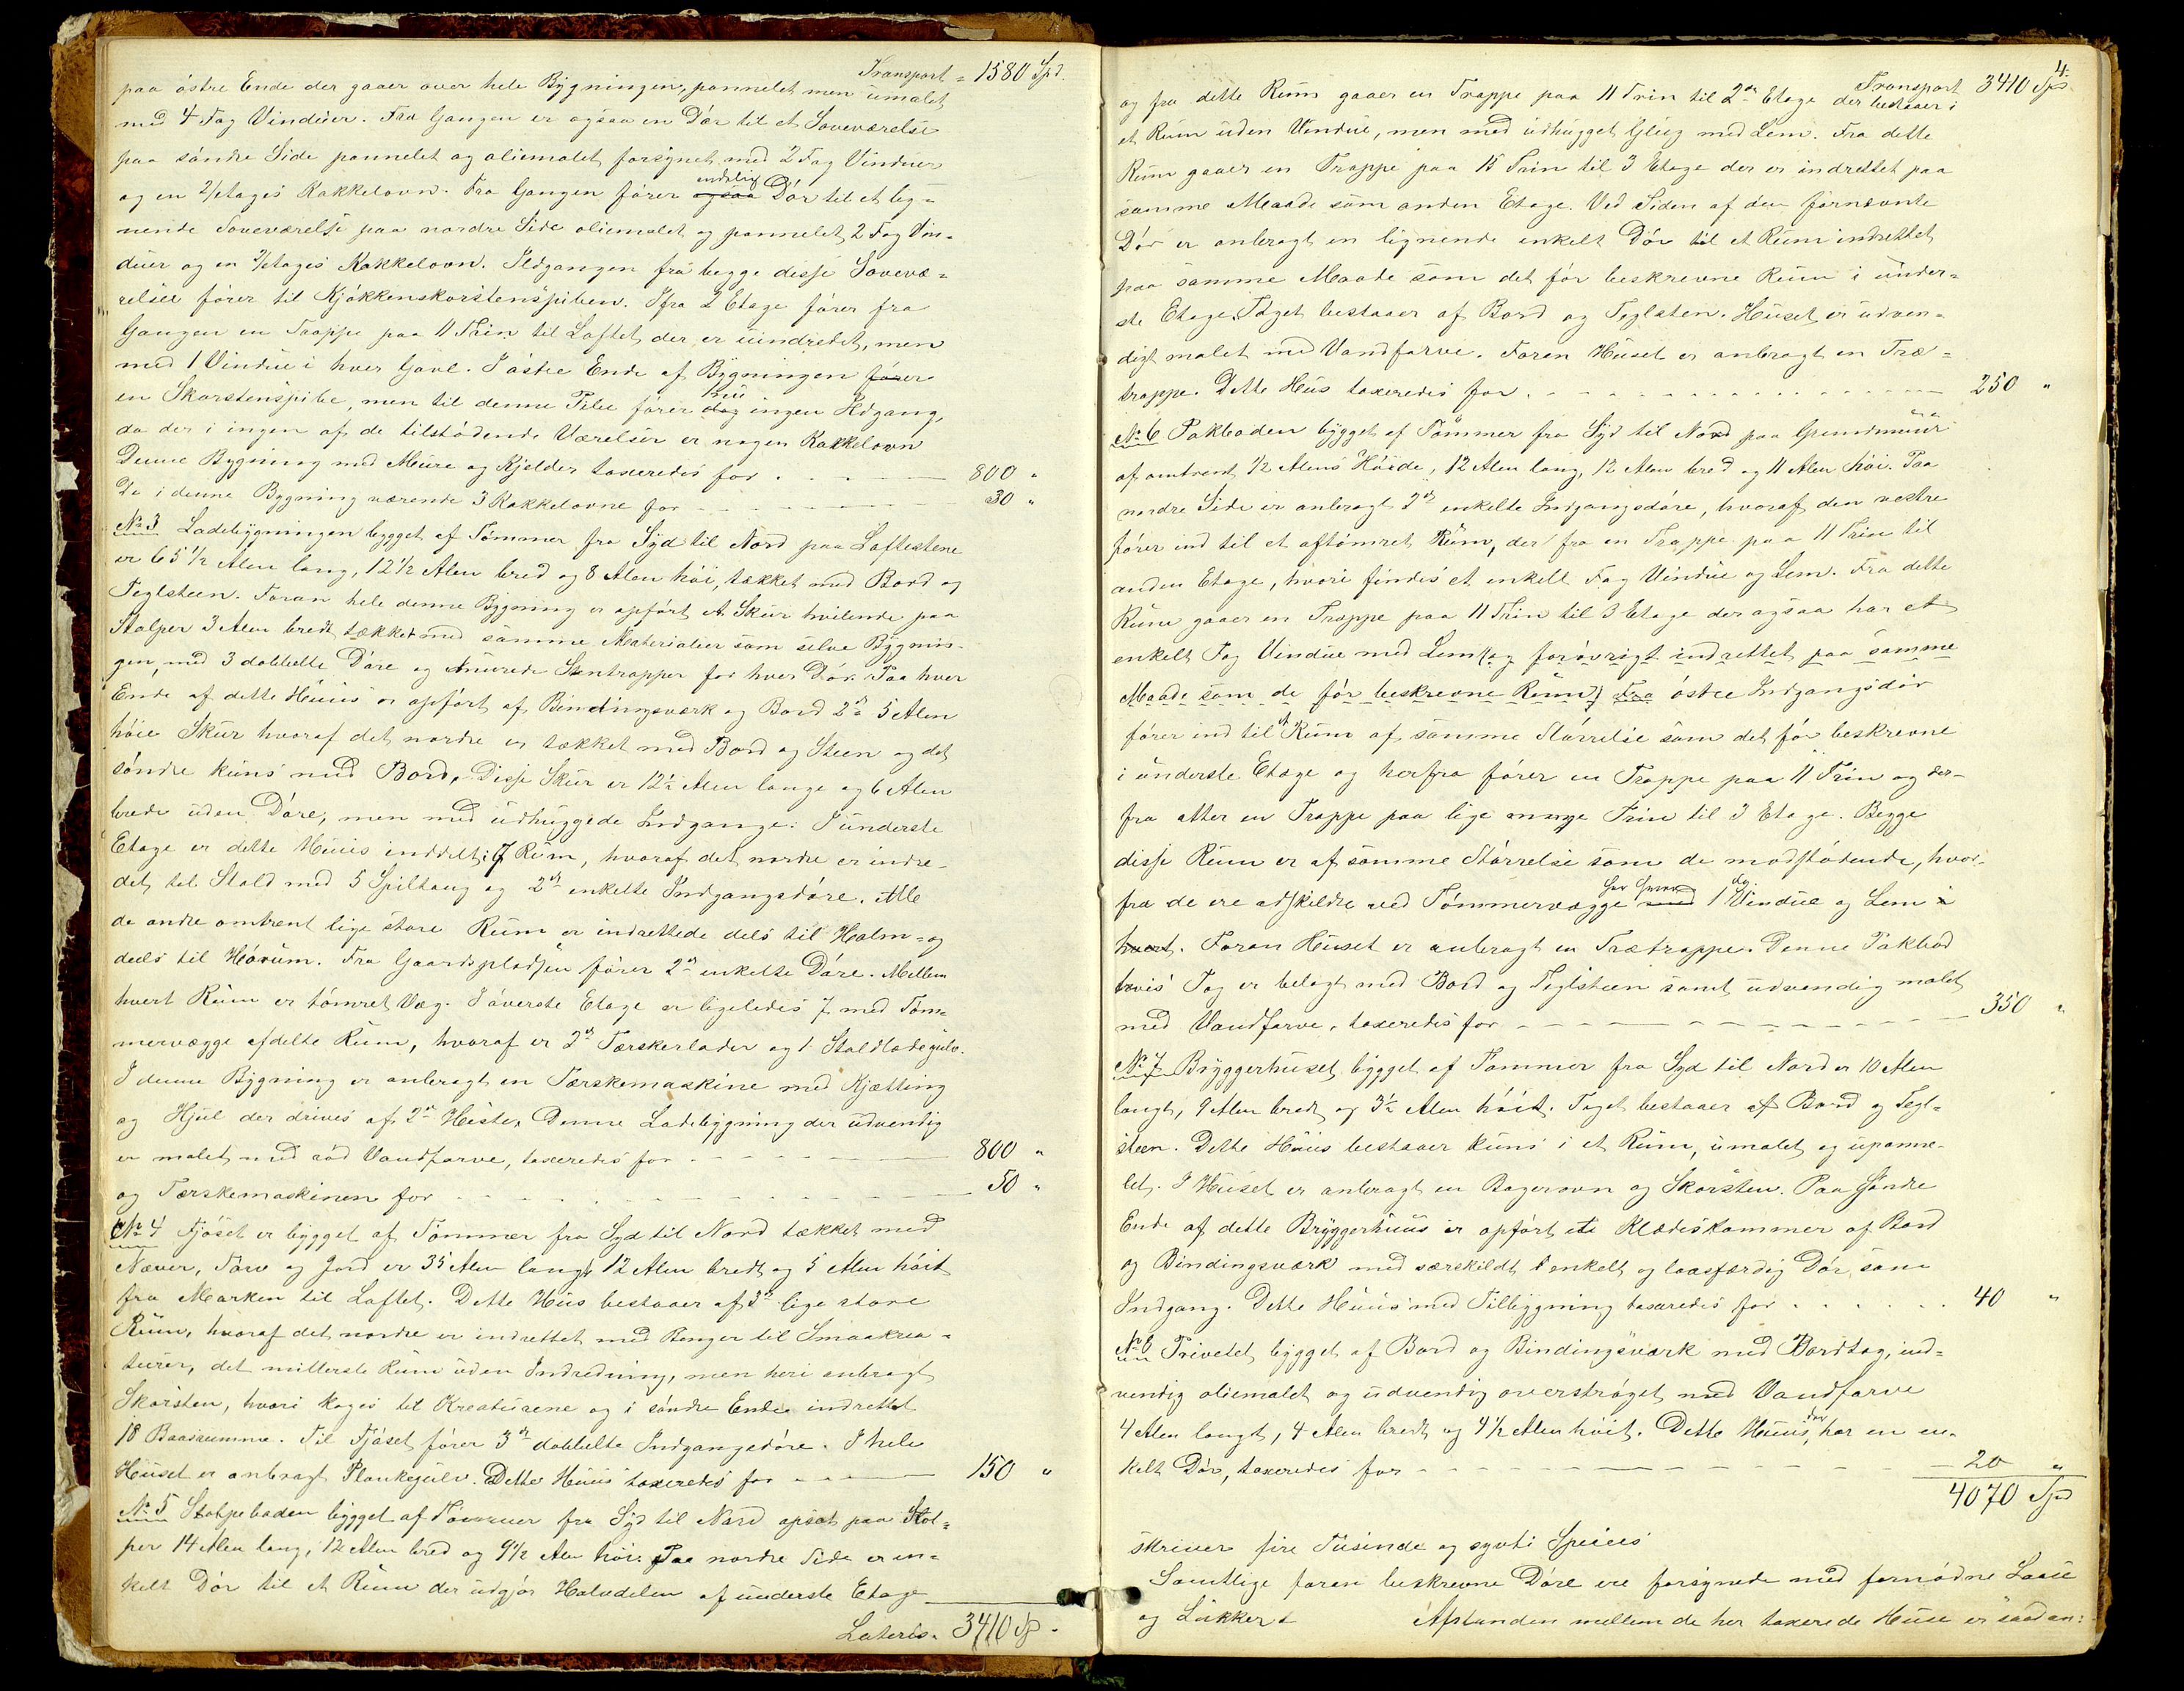 Transport = 1580 Spd.
paa østre Ende der gaaer over hele Bygningen, pannelet men umalet
med 4 Fag Vinduer. Fra Gangen er ogsaa en Dør til et Soveværelse
paa søndre Side pannelet og oliemalet forsynet med 2 Fag Vinduer
og en 2/etages Kakkelovn. Fra Gangen fører ogsaa endelig Dør til et lig=
nende Soveværelse paa nordre Side oliemalet og pannelet, 2 Fag Vin=
duer og en 2/etages Kakkelovn. Ildgangen fra begge disse Sovevæ=
relser fører til Kjøkkenskorstenspiben. Ifra 2 Etage fører fra
Gangen en Trappe paa 11 Trin til Loftet, der er uindredet, men
med 1 Vindue i hver Gavl. I østre Ende af Bygningen fører
en Skorstenspibe, men til denne Pibe fører dog ingen Ildgang,
da der i ingen af de tilstødende Værelser er nogen Kakkelovn
Denne Bygning med Mure og Kjelder taxeredes for - - - 800 "
De i denne Bygning værende 3 Kakkelovne for - - - 30 "
No 3 Ladebygningen bygget af Tømmer fra Syd til Nord paa Loftestene
er 65 1/2 Alen lang, 12 1/2 Alen bred og 8 Alen høi, tækket med Bord og
Teglsteen. Foran hele denne Bygning er opført et Skur hvilende paa
Stolper 3 Alen bredt tækket med samme Materialier som selve Bygnin-
gen, med 3 dobbelte Døre og murede Stentrapper for hver Dør. Paa hver
Ende af dette Huus er opført af Bindingsværk og Bord 2de 5 Alen
høie Skur hvoraf det nordre er tækket med Bord og Steen og det
søndre kuns med Bord. Disse Skur er 12 1/2 Alen lange og 6 Alen
brede uden Døre, men med udhuggede Indgange. I underste
Etage er dette Huus inddelt i 7 Rum, hvoraf det nordre er indre-
det til Stald med 5 Spiltaug og 2de enkelte Indgangsdøre. Alle
de andre omtrent lige store Rum er indrettede dels til Halm- og
deels til Hørum. Fra Gaardspladsen fører 2de enkelte Døre. Mellem
hvert Rum er tømret Væg. I øverste Etage er ligeledes 7 med Tøm=
mervægge afdelte Rum, hvoraf er 2de Tærskerlader og 1 Staldladegulv.
I denne Bygning er anbragt en Tærskemaskine med Kjætting
og Hjul der drives af 2de Heste. Denne Ladebygning der udvendig
er malet med rød Vandfarve, taxeredes for - - - 800 "
og Tærskemaskinen for - - - 50 "
No 4 Fjøset er bygget af Tømmer fra Syd til Nord tækket med
Næver, Torv og Jord er 35 Alen langt, 12 Alen bredt og 5 Alen høit
fra Marken til Loftet. Dette Huus bestaaer af 3de lige store
Rum, hvoraf det nordre er indrettet med Benger til Smaakrea=
turer, det mitterste Rum uden Indredning, men heri anbragt
Skorsten, hvori koges til Kreaturene og i søndre Ende indrettet
18 Baasrumme. Til Fjøset fører 3de dobbelte Indgangsdøre. I hele
Huset er anbragt Plankegulv. Dette Huus taxeredes for - - - 150 "
No 5 Stolpeboden bygget af Tømmer fra Syd til Nord opsat paa Stol=
per 14 Alen lang, 12 Alen bred og 9 1/2 Alen høi. Paa nordre Side er en=
kelt Dør til et Rum der udgjør Halvdelen af underste Etage
Lateris. 3410 Sp.
4.
Transport 3410 Spd.
og fra dette Rum gaaer en Trappe paa 11 Trin til 2den Etage der bestaaer i
et Rum uden Vindue, men med udhugget Glug med Lem. Fra dette
Rum gaaer en Trappe paa 15 Trin til 3 Etage der er indrettet paa
samme Maade som anden Etage. Ved Siden af den førnævnte
Dør er anbragt en lignende enkelt Dør til et Rum indrettet
paa samme Maade som det før beskrevne Rum i under=
ste Etage. Taget bestaaer af Bord og Teglsten. Huset er udven=
digt malet med Vandfarve. Foran Huset er anbragt en Træ=
trappe. Dette Hus taxeredes for - - - 250 "
No 6 Pakboden bygget af Tømmer fra Syd til Nord paa Grundmuur
af omtrent 1/2 Alens Høide, 12 Alen lang, 12 Alen bred og 11 Alen høi. Paa
nordre Side er anbragt 2de enkelte Indgangsdøre, hvoraf den vestre
fører ind til et aftømret Rum, der fra en Trappe paa 11 Trin til
anden Etage, hvori findes et enkelt Fag Vindue og Lem. Fra dette
Rum gaaer en Trappe paa 11 Trin til 3 Etage der ogsaa har et
enkelt Fag Vindue med Lem (og forøvrigt indrettet paa samme
Maade som de før beskrevne Rum) Fra østre Indgangsdør
fører ind til et Rum af samme Størrelse som det før beskrevne
i underste Etage og herfra fører en Trappe paa 11 Trin og der-
fra atter en Trappe paa lige mange Trin til 3 Etage. Begge
disse Rum er af samme Størrelse som de modstødende, hvor-
fra de ere adskildte ved Tømmervægge med 1 Vindue og Lem i
hvert. Foran Huset er anbragt en Trætrappe. Denne Pakbod
hvis Tag er belagt med Bord og Teglsteen samt udvendig malet
med Vandfarve, taxeredes for - - - 350 "
No 7 Bryggerhuset bygget af Tømmer fra Syd til Nord er 10 Alen
langt, 9 Alen bredt og 3 1/2 Alen høit. Taget bestaaer af Bord og Tegl=
steen. Dette Huus bestaaer kuns i et Rum, umalet og upanne-
let. I Huset er anbragt en Bagerovn og Skorsten. Paa søndre
Ende af dette Bryggerhuus er opført et Klædeskammer af Bord
og Bindingsværk med særskildt 1 enkelt og laasfærdig Dør som
Indgang. Dette Huus med Tilbygning taxeredes for - - - 40 "
No 8 Privetet bygget af Bord og Bindingsværk med Bordtag, ind=
vendig oliemalet og udvendig overstrøget med Vandfarve
4 Alen langt, 4 Alen bredt og 4 1/2 Alen høit. Dette Huus, der har en en-
kelt Dør, taxeredes for - - - 20 "
4070 Spd
skriver fire Tusinde og sytti Species
Samtlige foran beskrevne Døre ere forsynede med fornødne Laase
og Lukker. Afstanden mellem de her taxerede Huse er saadan: